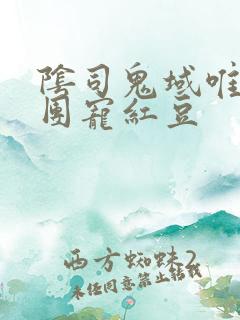 陰司鬼域唯
團寵紅豆
西方蜘蛛2
未经同意禁止转载